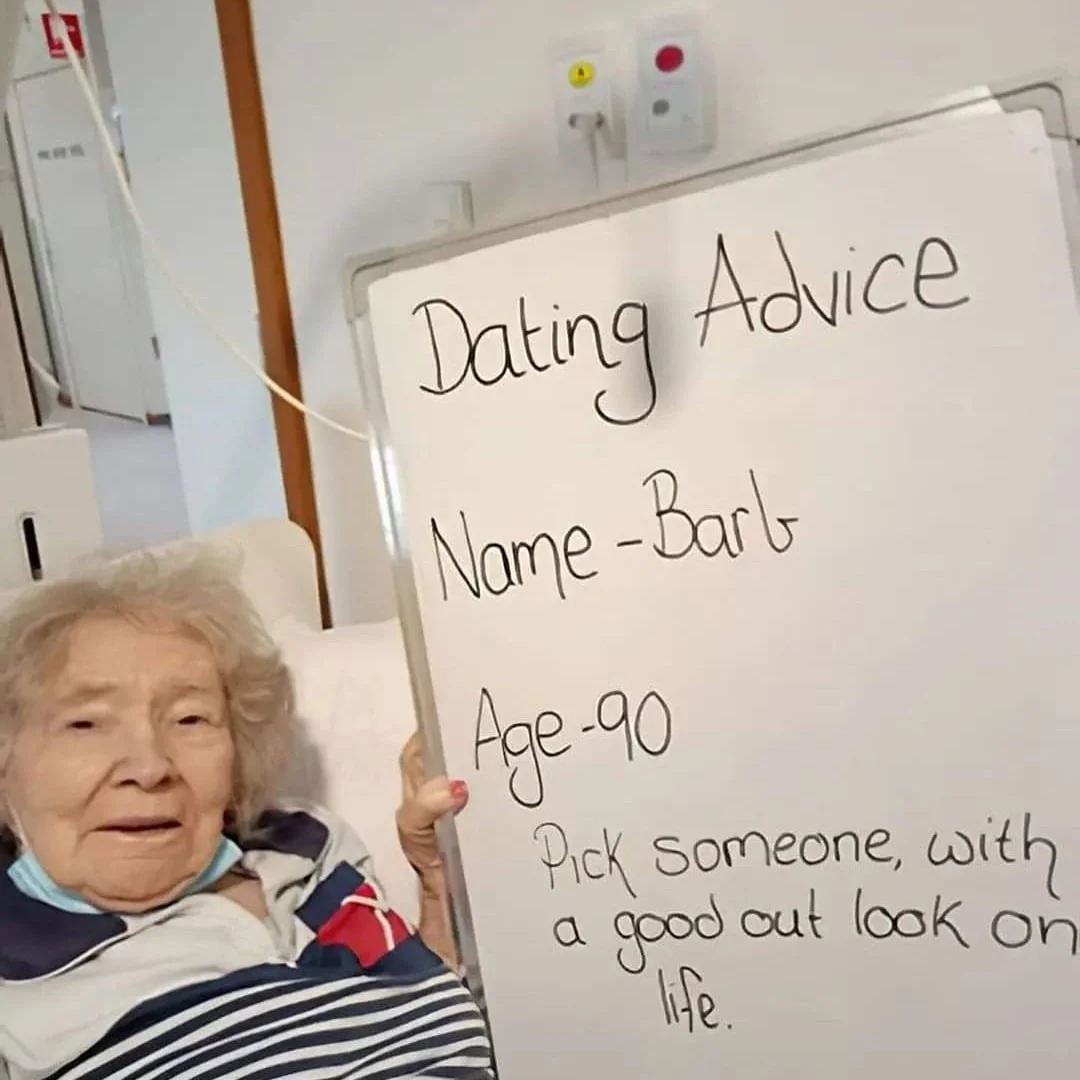 Dating Advice
Name - Barb
Age - 90
Pick someone, with
a good out look on
life.